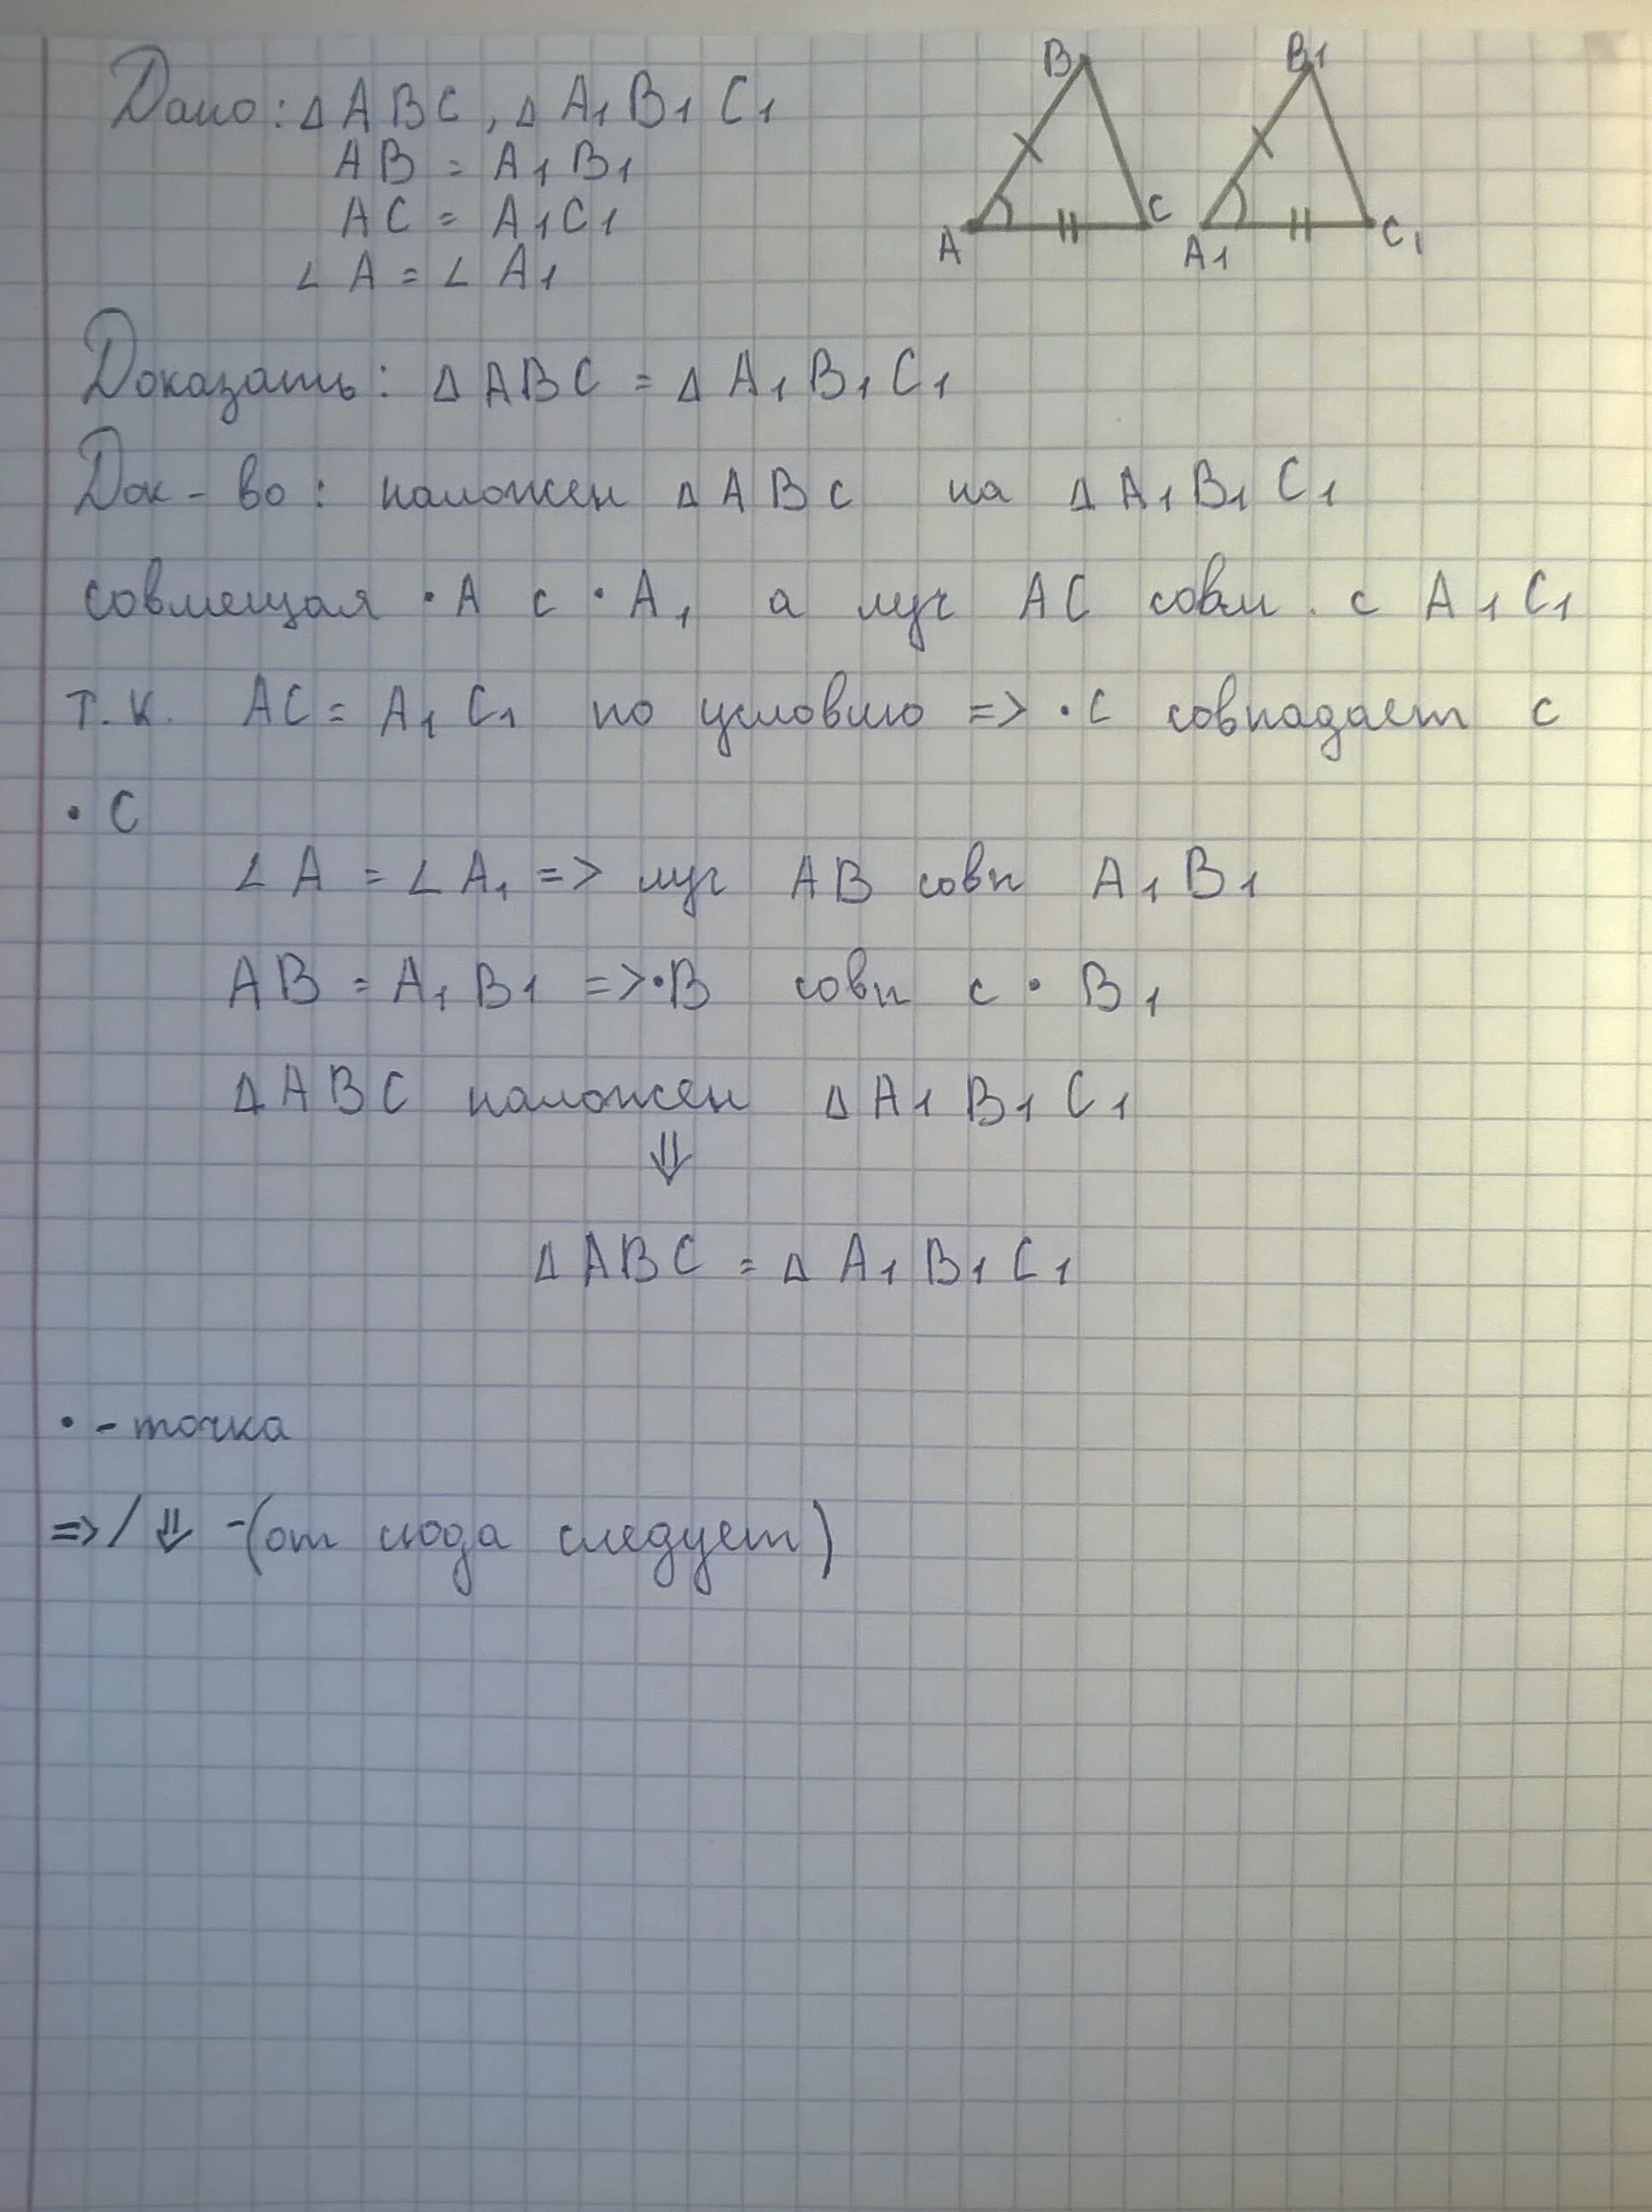 Дано: Δ A B C, Δ A₁ B₁ C₁
AB = A₁ B₁
AC = A₁ C₁
∠ A = ∠ A₁
B
B₁
A
C
A₁
C₁
Доказать: Δ ABC = Δ A₁ B₁ C₁
Док-во: наложен Δ ABC на Δ A₁ B₁ C₁
совмещая •A с •A₁ а луч AC совм. с A₁ C₁
т.к. AC = A₁ C₁ по условию => •C совпадает с
• C
∠ A = ∠ A₁ => луч AB совп A₁ B₁
AB = A₁ B₁ => •B совп с • B₁
Δ ABC наложен Δ A₁ B₁ C₁
⇓
Δ ABC = Δ A₁ B₁ C₁
• - точка
=> / ⇓ - (от сюда следует)